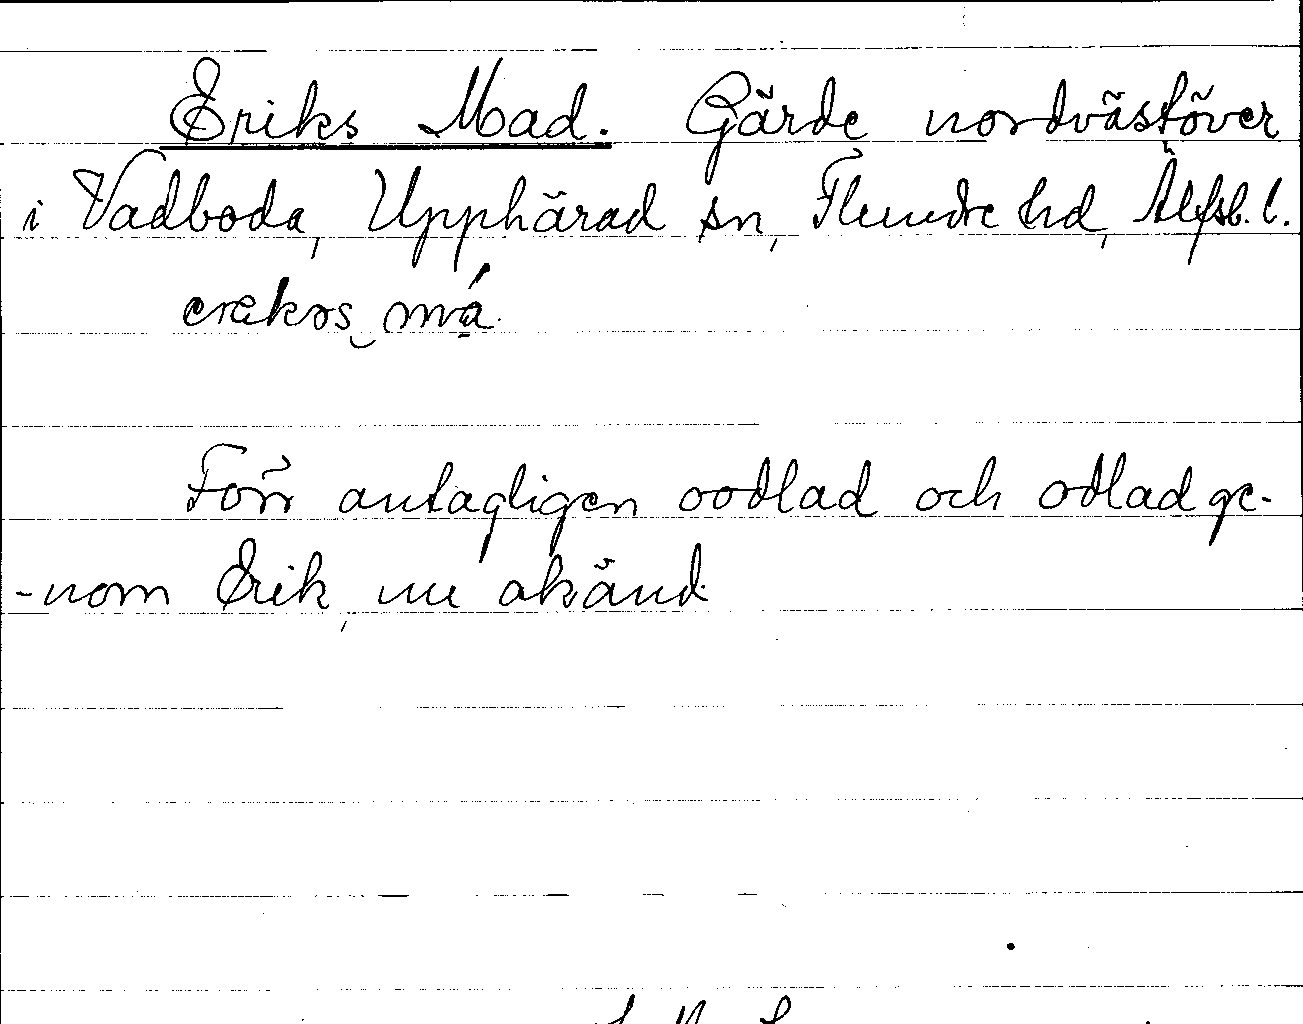 Eriks Mad. Gärde nordvästöver
i Vadboda, Upphärad sn, Flundre hd, Älfsb. l.
ereks má.
Förr antagligen oodlad och odlad ge-
-nom Erik, nu okänd.